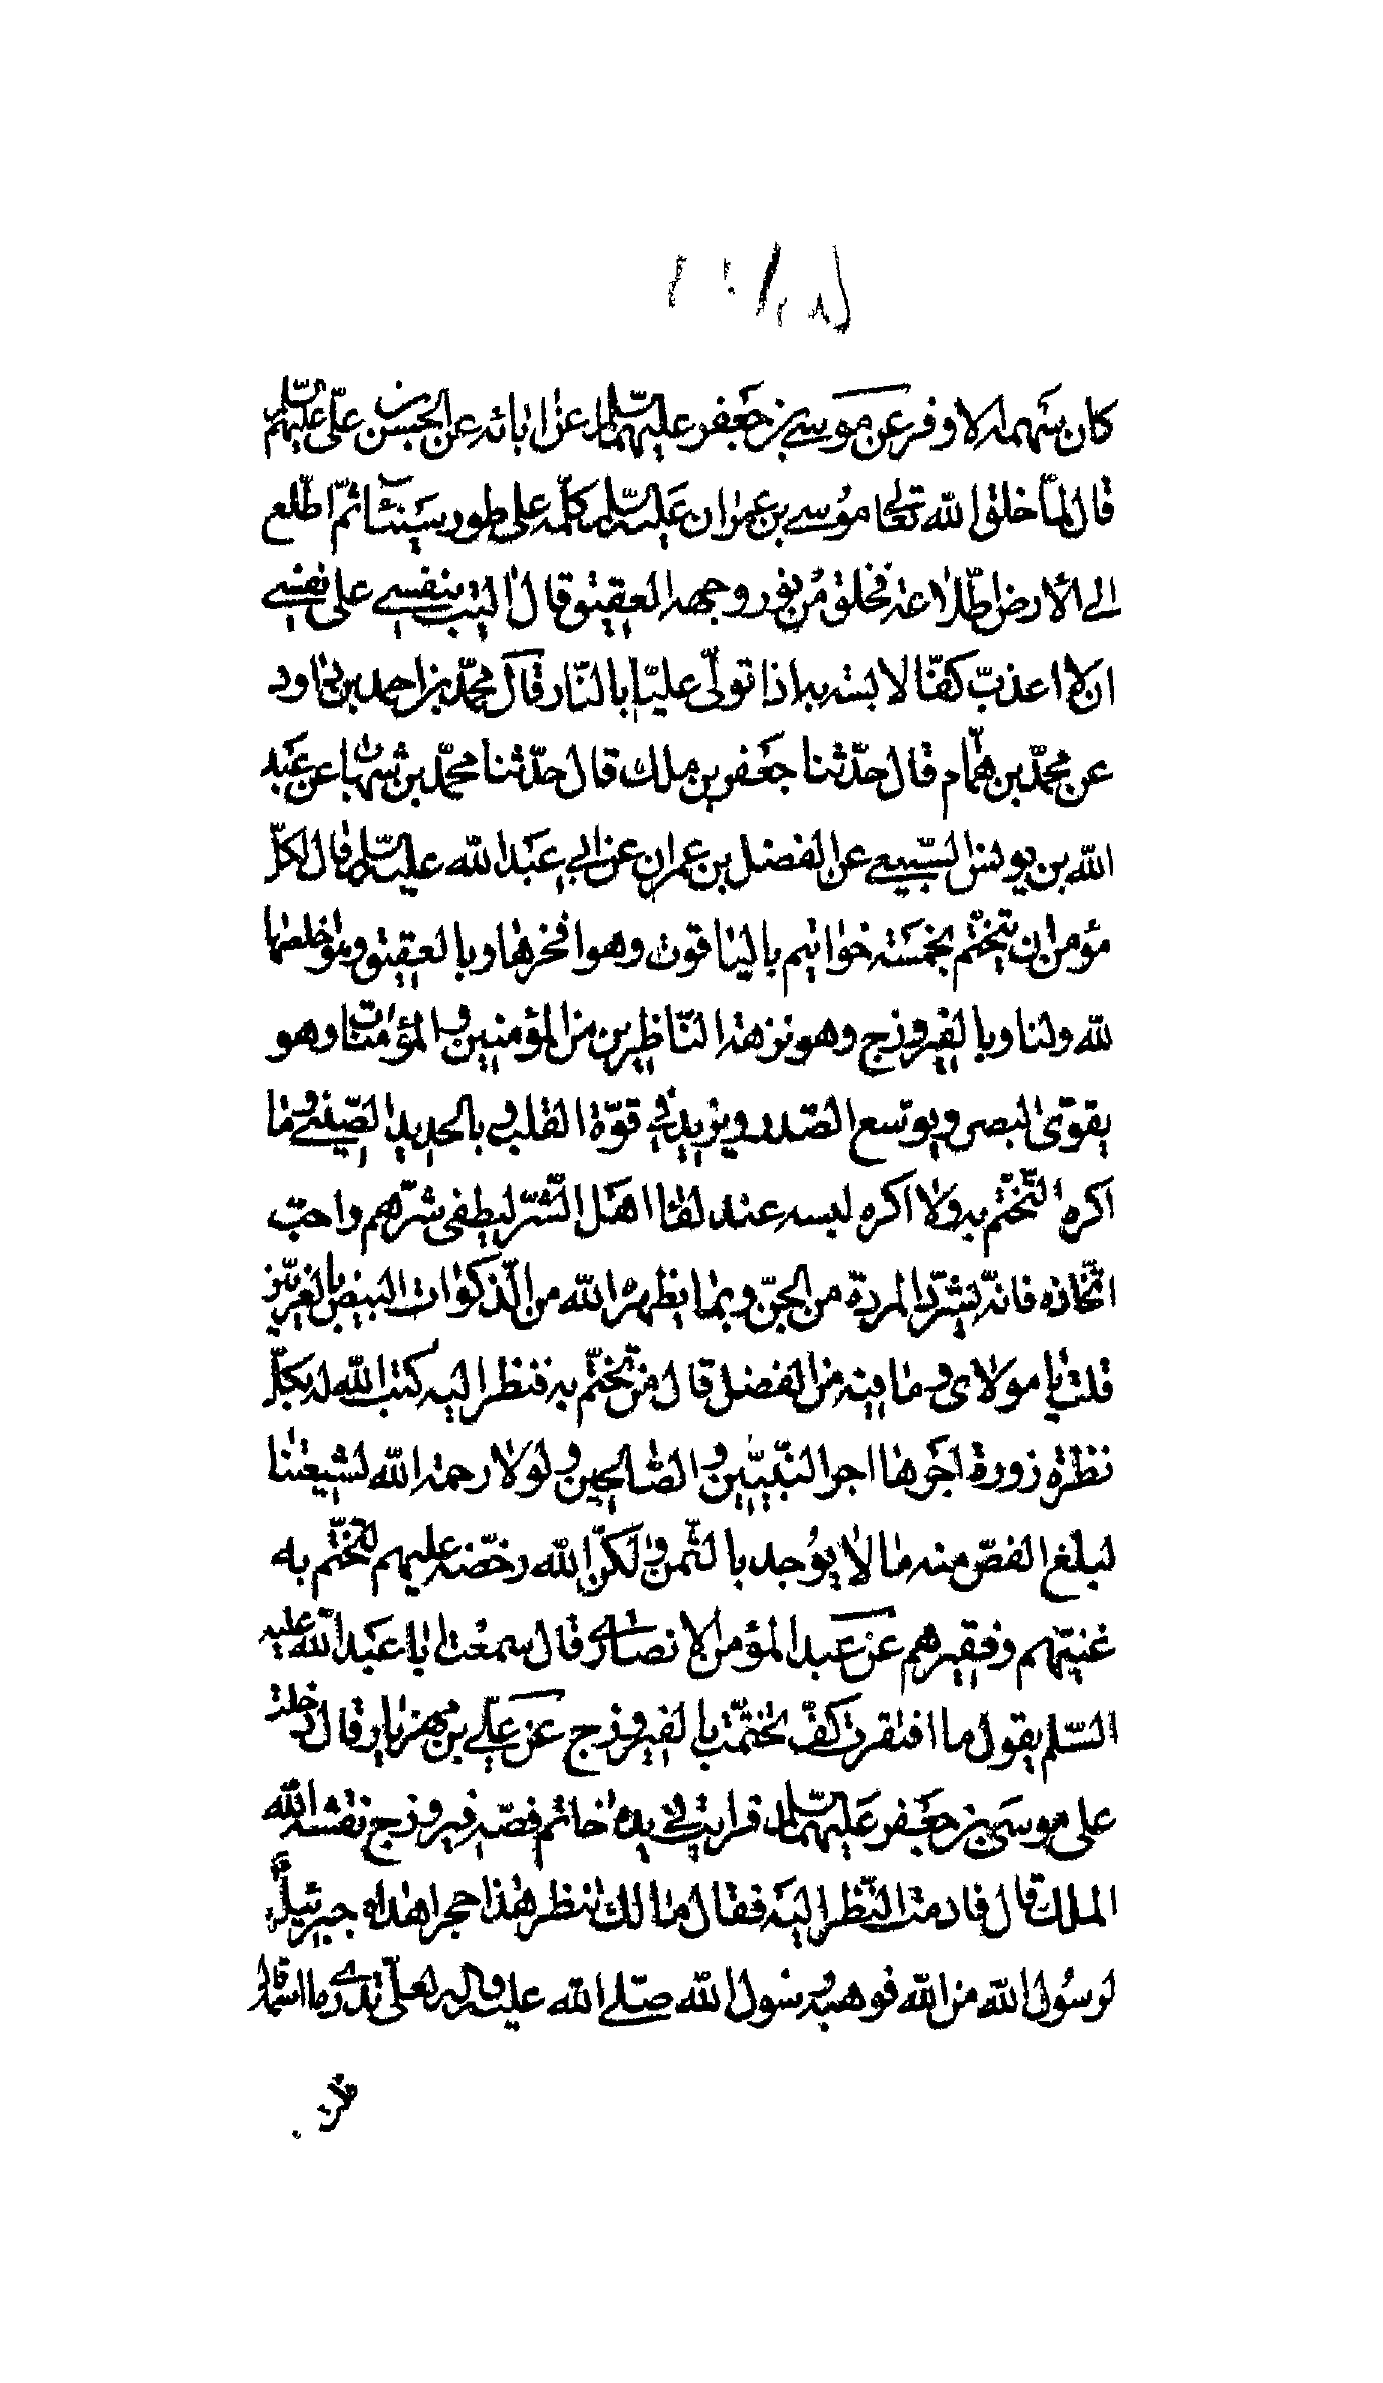 كان سهمه الاوفر عن موسى بن جعفر عليهما السلم عن ابائه عن الحسن بن على عليهم السلم
قال لما خلق الله تعالى موسى بن عمران عليه السلم كلمه على طور سيناء ثم اطلع
الى الارض اطلاعة فخلق من نور وجهه العقيق وقال اليت بنفسى على نفسى
ان لا اعذب كفا لابسته به اذا تولى عليا بالنار قال محمد بن احمد بن داود
عن محمد بن همام قال حدثنا جعفر بن ملك قال حدثنا محمد بن شهاب عن عبد
الله بن يونس السبيعى عن الفضل بن عمران عن ابى عبد الله عليه السلم قال لكل
مؤمن ان يتختم بخمسة خواتيم بالياقوت وهو افخرها وبالعقيق وهو اخلصها
لله ولنا وبالفيروزج وهو نزهة الناظرين من المؤمنين والمؤمنات وهو
يقوى البصر ويوسع الصدر ويزيد فى قوة القلب وبالحديد الصينى وما
اكره التختم به ولا اكره لبسه عند لقاء اهل الشر ليطفى شرهم واحب
اتخاذه فانه يشرد المردة من الجن وبما يظهره الله من الذكوات البيض بالغريين
قلت يا مولاى وما فيه من الفضل قال من تختم به فنظر اليه كتب الله له بكل
نظرة زورة اجرها اجر النبيين والصالحين ولولا رحمة الله لشيعتنا
لبلغ الفص منه ما لا يوجد بالثمن ولكن الله رخصه عليهم لتختم به
غنيهم وفقيرهم عن عبد المؤمن الانصارى قال سمعت ابا عبد الله عليه
السلم يقول ما افتقرت كف تختمت بالفيروزج عن على بن مهزيار قال دخلت
على موسى بن جعفر عليهما السلم فرايت فى يده خاتم فصه فيروزج نقشه الله
الملك قال فادمت النظر اليه فقال ما لك تنظر هذا حجر اهداه جبرئيل
لرسول الله من الله فوهبه رسول الله صلى الله عليه واله لعلى تدرى ما اسمه قال